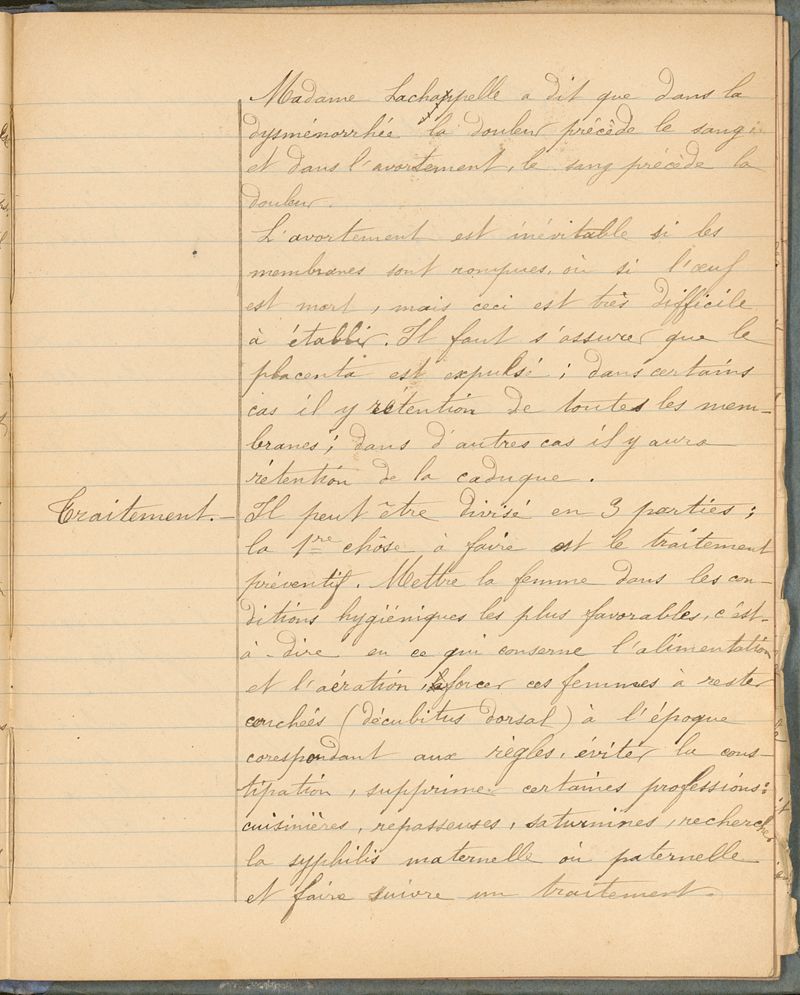 Madame Lachappelle a dit que dans la
dysménorrhée la douleur précède le sang;
et dans l'avortement, le sang précède la
douleur.
L'avortement est inévitable si les
membranes sont rompues, où si l'œuf
est mort, mais ceci est très difficile
à établir. Il faut s'assurer que le
placenta est expulsé; dans certains
cas il y rétention de toutes les mem-
branes; dans d'autres cas il y aura
rétention de la caduque.
Traitement. – Il peut être divisé en 3 parties;
la 1re chôse à faire est le traitement
préventif. Mettre la femme dans les con-
ditions hygiéniques les plus favorables, c'est-
à-dire en ce qui conserne l'alimentation
et l'aération, forcer ces femmes à rester
couchées (décubitus dorsal) à l'époque
corespondant aux règles, éviter la cons-
tipation, supprimer certaines professions:
cuisinières, repasseuses, saturnines, rechercher
la syphilis maternelle où paternelle
et faire suivre un traitement.